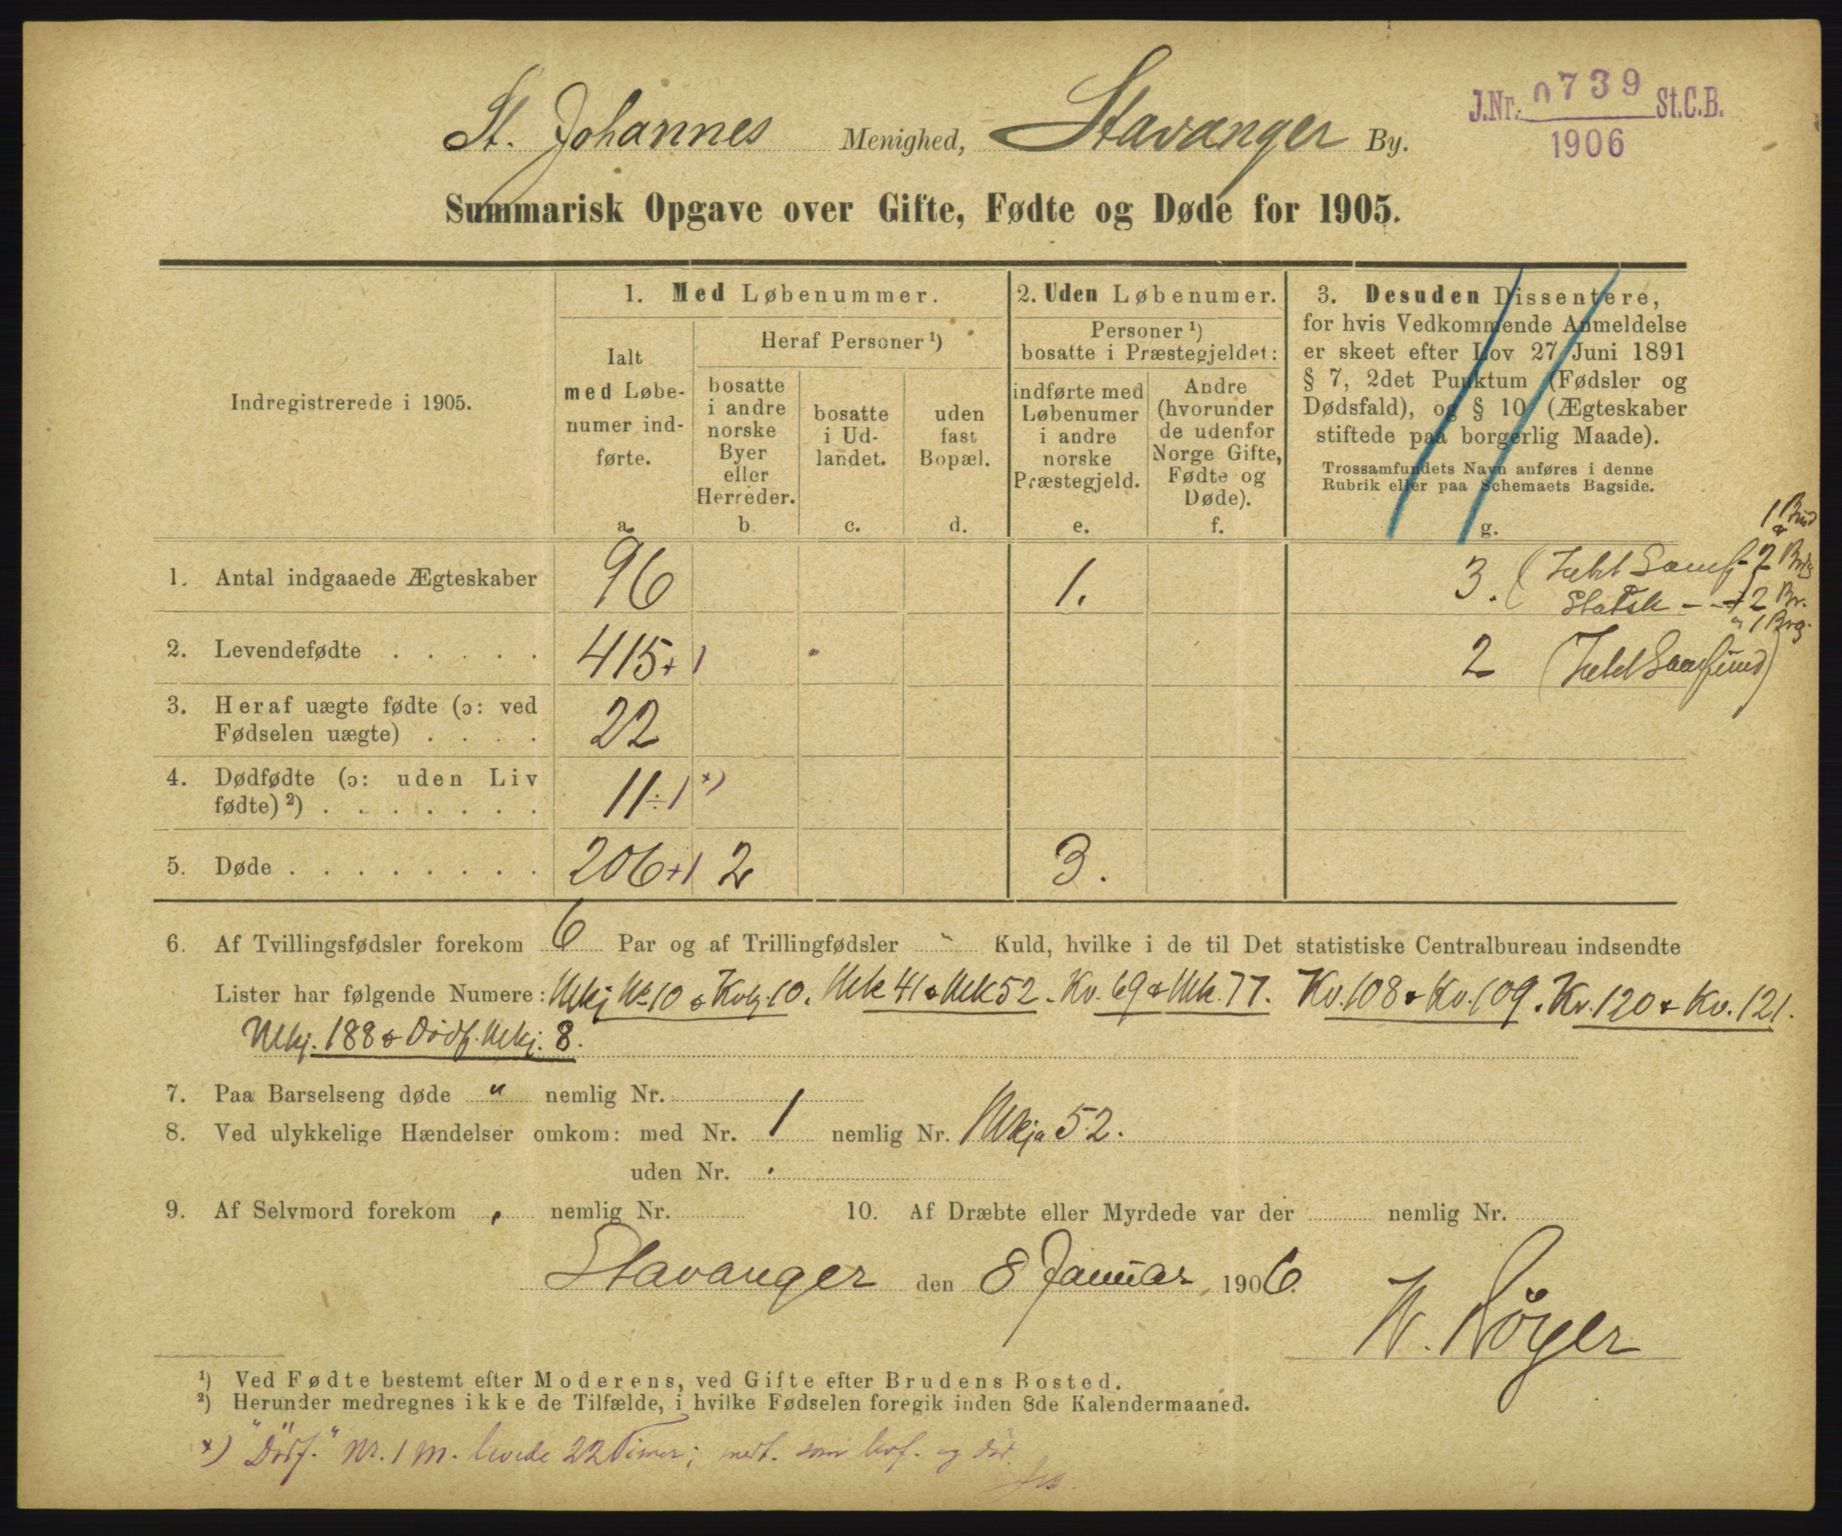 St. Johannes Menighed, Stavanger By.
J.Nr. 0739 St.C.B.
1906
Summarisk Opgave over Gifte, Fødte og Døde for 1905.
Indregistrerede i 1905.
1. Med Løbenummer.
Ialt
med Løbe-
numer ind-
førte.
a.
Heraf Personer ¹)
bosatte
i andre
norske
Byer
eller
Herreder.
b.
bosatte
i Ud-
landet.
c.
uden
fast
Bopæl.
d.
2. Uden Løbenumer.
Personer ¹)
bosatte i Præstegjeldet:
indførte med
Løbenumer
i andre
norske
Præstegjeld.
e.
Andre
(hvorunder
de udenfor
Norge Gifte,
Fødte og
Døde).
f.
3. Desuden Dissentere,
for hvis Vedkommende Anmeldelse
er skeet efter Lov 27 Juni 1891
§ 7, 2det Punktum (Fødsler og
Dødsfald), og § 10 (Ægteskaber
stiftede paa borgerlig Maade).
Trossamfundets Navn anføres i denne
Rubrik eller paa Schemaets Bagside.
g.
1. Antal indgaaede Ægteskaber 96 1. 3. 
2. Levendefødte . . . . . 415 + 1 2
3. Heraf uægte fødte (ɔ: ved
Fødselen uægte) . . . . 22
4. Dødfødte (ɔ: uden Liv
fødte) ²) . . . . . . . 11 ÷ 1 *)
5. Døde . . . . . . . . 206 + 1 2 3.
6. Af Tvillingsfødsler forekom 6 Par og af Trillingfødsler " Kuld, hvilke i de til Det statistiske Centralbureau indsendte
Lister har følgende Numere: Mkj No 10 & Kvkj. 10. Mk 41 & Mk 52. Kv. 69 & Mk. 77. Kv. 108 & Kv. 109. Kv. 120 & Kv. 121.
Mkj. 188 & Dødf. Mkj. 8.
7. Paa Barselseng døde " nemlig Nr.
8. Ved ulykkelige Hændelser omkom: med Nr. 1 nemlig Nr. Mkjø 52.
uden Nr. .
9. Af Selvmord forekom , nemlig Nr.
10. Af Dræbte eller Myrdede var der nemlig Nr.
Stavanger den 8 Januar 1906.
¹) Ved Fødte bestemt efter Moderens, ved Gifte efter Brudens Bosted.
²) Herunder medregnes ikke de Tilfælde, i hvilke Fødselen foregik inden 8de Kalendermaaned.
*) "Dødf." Nr. 1 M. levede 22 Timer; medt. som lvf. og død.